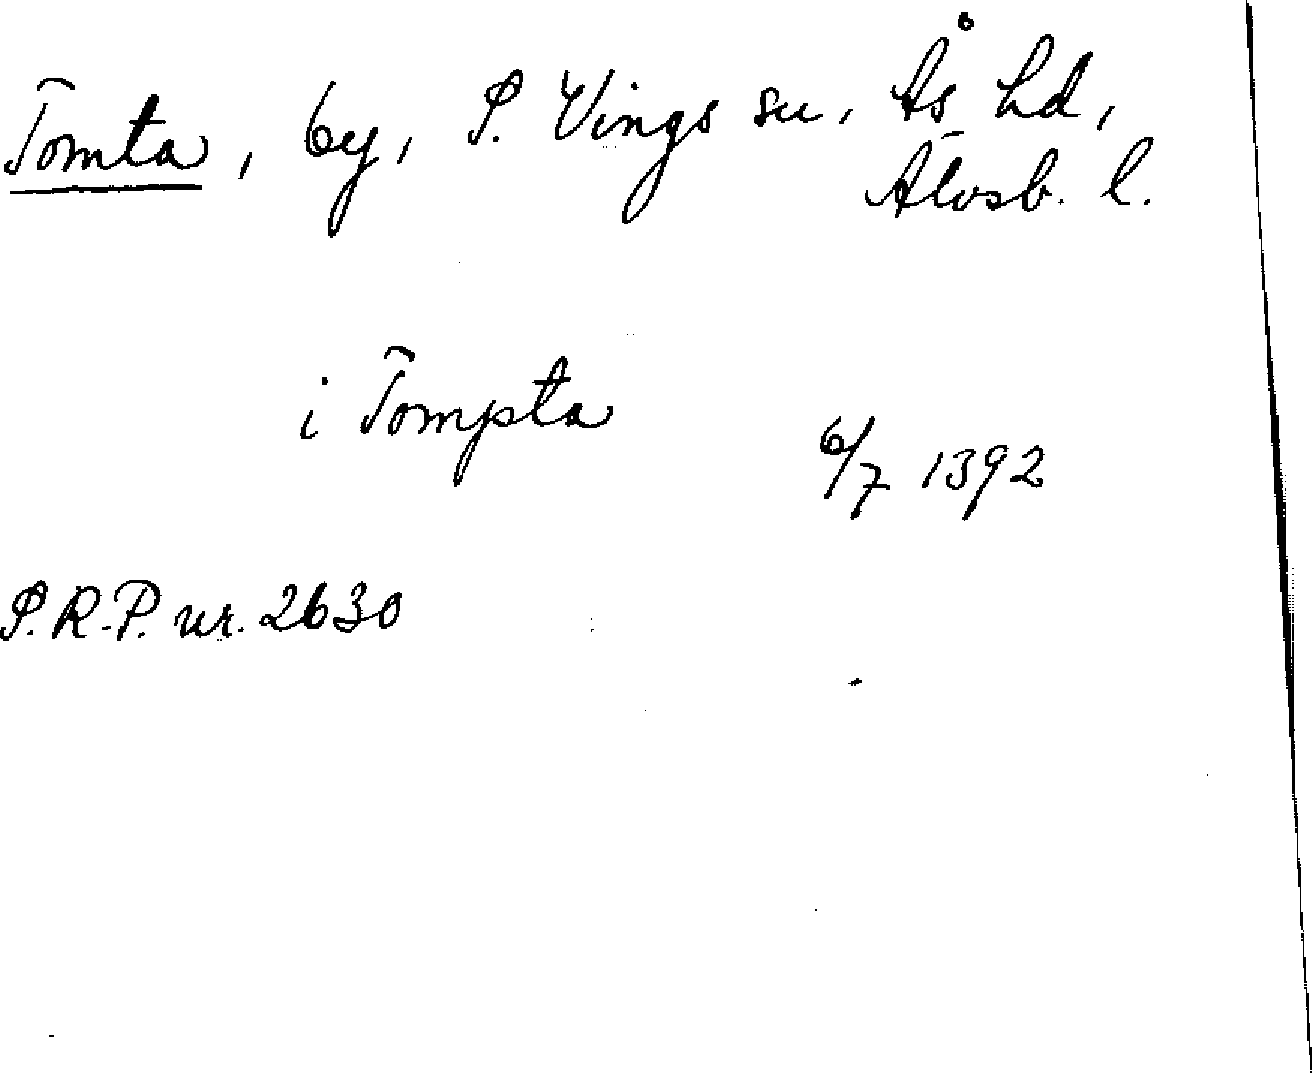 Tomta, by, S. Vings sn, Ås hd,
Älvsb. l.
i Tompta
6/7 1392
S.R.P. nr. 2630